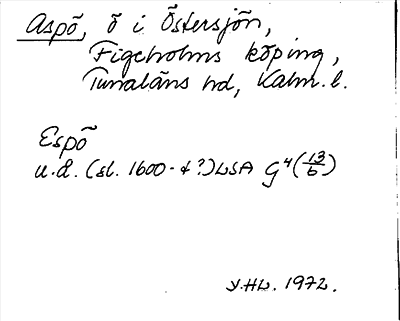 Aspö, ö i Östersjön,
Figeholms köping,
Tunaläns hd, Kalm. l.
Espö
u.d. (sl. 1600-t ?) LSA G⁴ (13/6)
Y.HL. 1972.